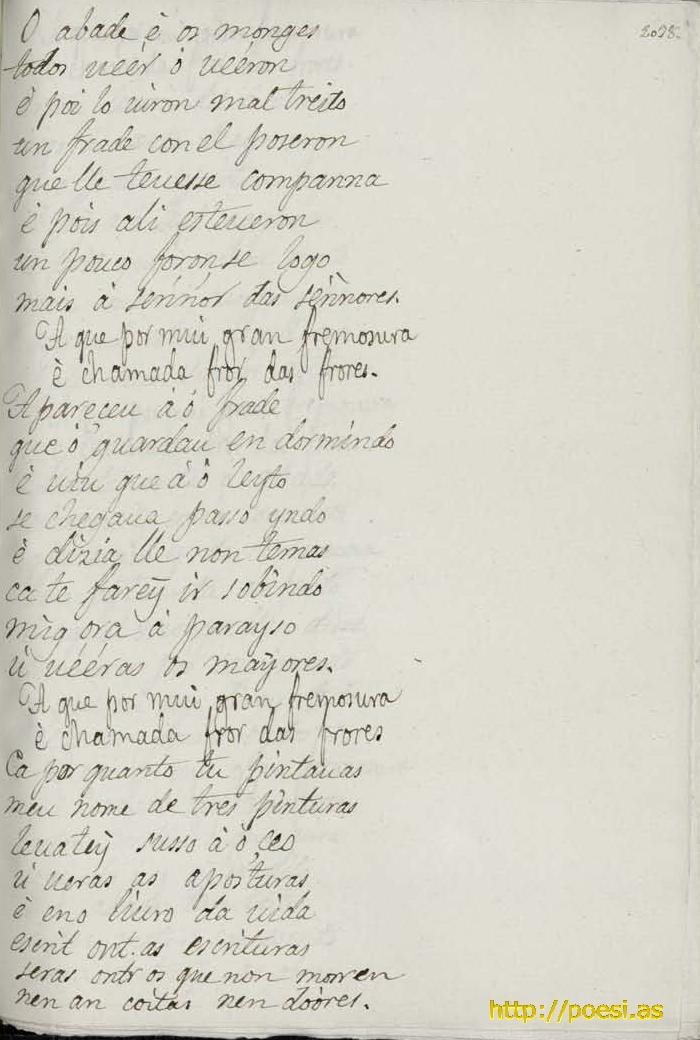 O abade è os monges
todos uéér ò uééron
è poi lo uiron mal treito
un frade con el poseron
que lle teuesse companna
è pois ali esteueron
un pouco foronse logo
mais à sennor das sennores.
A que por mui gran fremosura
è chamada fror das frores.
Apareceu à ò frade
que ò guardau en dormindo
è uiu que à ò leyto
se chegaua passo yndo
è dizia lle non temas
ca te farey ir sobindo
mig ora à parayso
ù uééras os mayores.
A que por mui gran fremosura
è chamada fror das frores
Ca por quanto tu pintauas
meu nome de tres pinturas
leuatey susso à ò ceo
ù ueras as aposturas
è eno liuro da uida
escrit ont. as escrituras
seras ontr os que non morren
nen an coitas nen dòores.
http://poesi.as